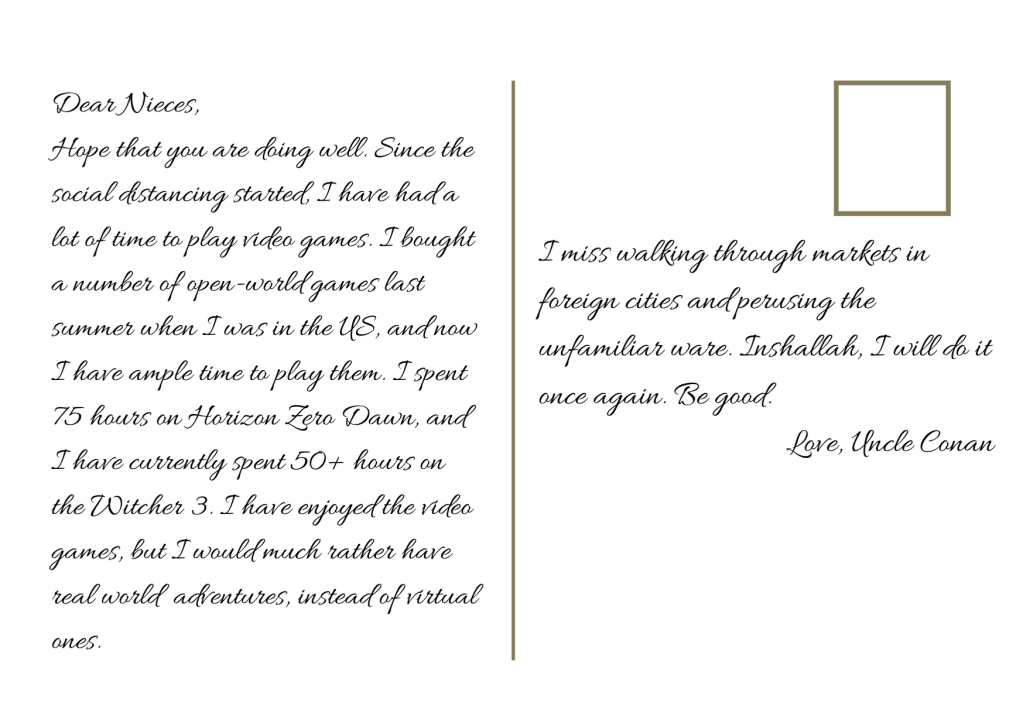 Dear Nieces,
Hope that you are doing well. Since the
social distancing started, I have had a
lot of time to play video games. I bought
a number of open-world games last
summer when I was in the US, and now
I have ample time to play them. I spent
75 hours on Horizon Zero Dawn, and
I have currently spent 50+ hours on
the Witcher 3. I have enjoyed the video
games, but I would much rather have
real world adventures, instead of virtual
ones.
I miss walking through markets in
foreign cities and perusing the
unfamiliar ware. Inshallah, I will do it
once again. Be good.
Love, Uncle Conan